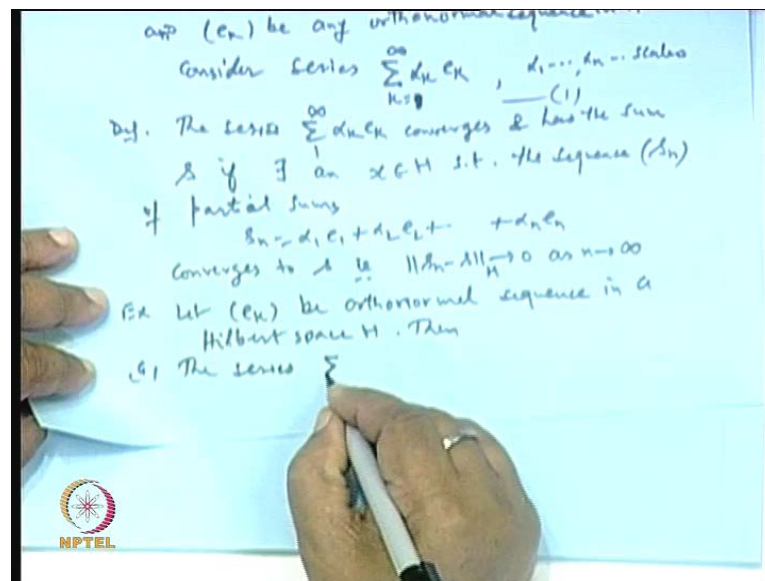 and (eκ) be any orthonormal sequence in
Consider series ∑_{κ=1}^{∞} ακ eκ , α1 ..., αn .. scalars
—(1)
Def. The series ∑_{1}^{∞} ακ eκ converges & has the sum
s if ∃ an x ∈ H s.t. the sequence (sn)
of partial sums
sn = α1 e1 + α2 e2 + ·· + αn en
converges to s ie ||sn - s||_H → 0 as n → ∞
Ex Let (eκ) be orthonormal sequence in a
Hilbert space H. Then
(a) The series ∑
NPTEL